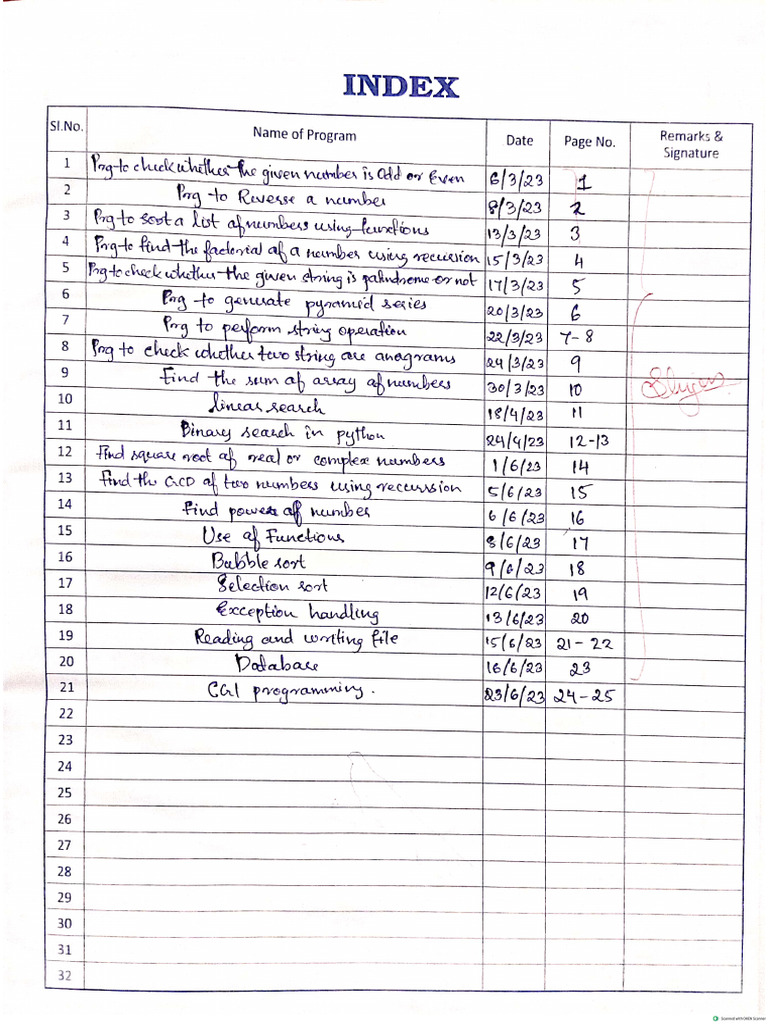 INDEX
Sl.No. Name of Program Date Page No. Remarks & Signature
1 Prg to check whether the given number is Odd or Even 6/3/23 1
2 Prg to Reverse a number 8/3/23 2
3 Prg to sort a list of numbers using functions 13/3/23 3
4 Prg to find the factorial of a number using recussion 15/3/23 4
5 Prg to check whether the given string is palindrome or not 17/3/23 5
6 Prg to generate pyramid series 20/3/23 6
7 Prg to perform string operation 22/3/23 7-8
8 Prg to check whether two string are anagrams 24/3/23 9
9 Find the sum of array of numbers 30/3/23 10
10 linear search 18/4/23 11
11 Binary search in python 24/4/23 12-13
12 Find square root of real or complex numbers 1/6/23 14
13 Find the GCD of two numbers using recurssion 5/6/23 15
14 Find power of number 6/6/23 16
15 Use of Functions 8/6/23 17
16 Bubble sort 9/6/23 18
17 Selection sort 12/6/23 19
18 Exception handling 13/6/23 20
19 Reading and writing file 15/6/23 21-22
20 Database 16/6/23 23
21 CGI programming. 23/6/23 24-25
22
23
24
25
26
27
28
29
30
31
32
Scanned with OKEN Scanner